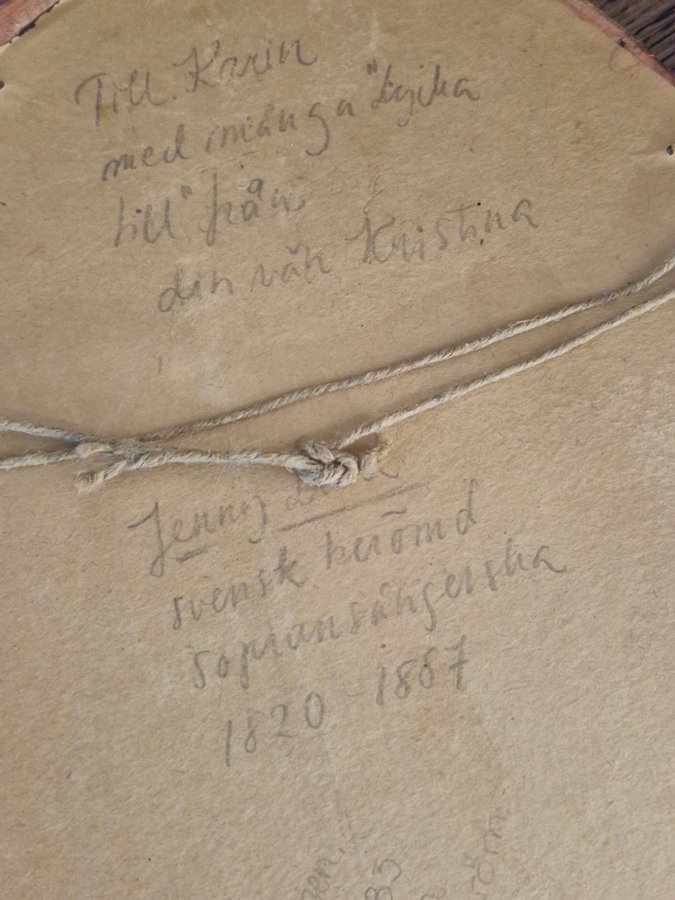 Till Karin
med många "Lycka
till" från
din vän Kristina
Jenny Lind
svensk berömd
sopransångerska
1820-1867